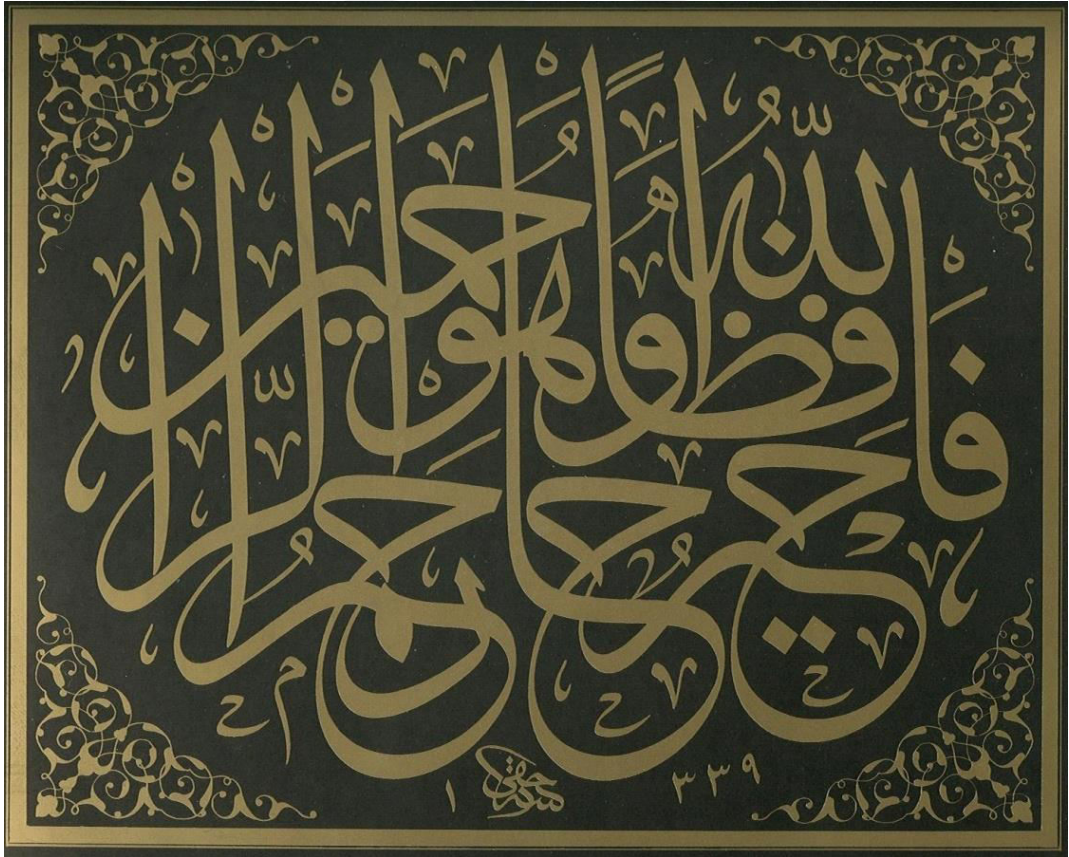 فَاللّٰهُ خَيْرٌ حَافِظًا وَهُوَ اَرْحَمُ الرَّاحِمِينَ
حقي ١٣٣٩